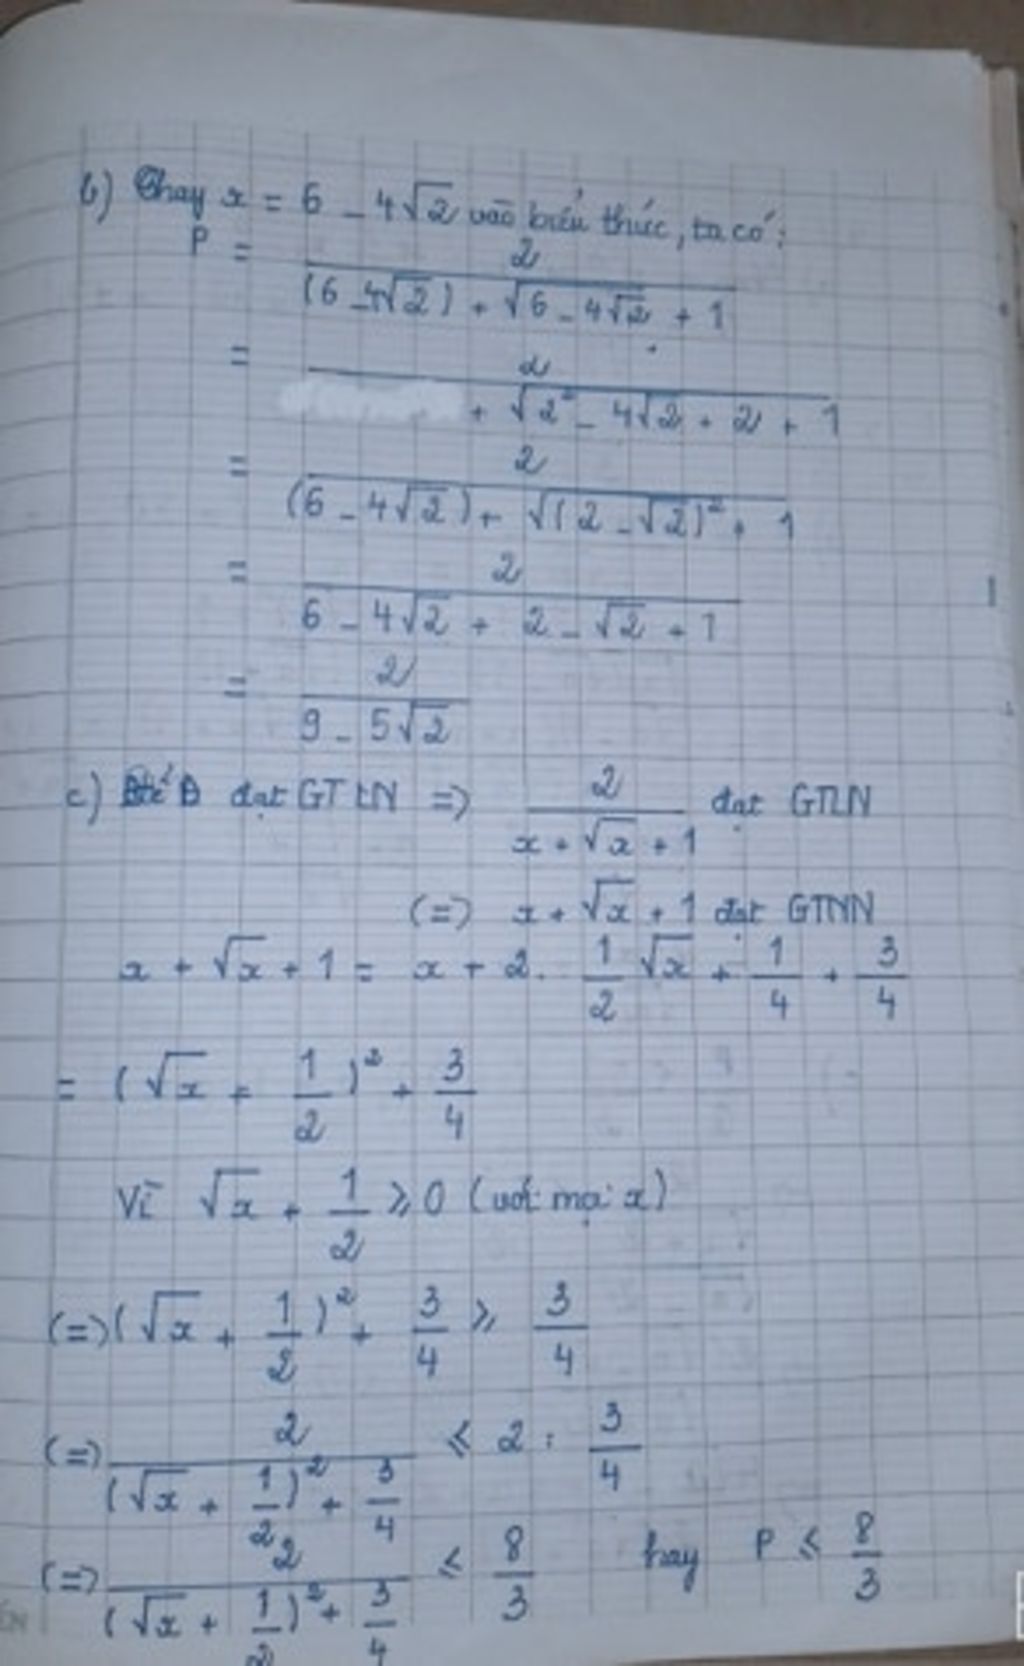 b) Thay x = 6 - 4√2 vào biểu thức, ta có:
P = 2 / ((6 - 4√2) + √(6 - 4√2) + 1)
= 2 / ( + √(2² - 4√2 + 2) + 1)
= 2 / ((6 - 4√2) + √((2 - √2)²) + 1)
= 2 / (6 - 4√2 + 2 - √2 + 1)
= 2 / (9 - 5√2)
c) đạt GTLN => 2 / (x + √x + 1) đạt GTLN
(=) x + √x + 1 đạt GTNN
x + √x + 1 = x + 2 . 1/2 √x + 1/4 + 3/4
= (√x + 1/2)² + 3/4
Vì √x + 1/2 ⩾ 0 (với mọi x)
(=) (√x + 1/2)² + 3/4 ⩾ 3/4
(=) 2 / ((√x + 1/2)² + 3/4) ⩽ 2 : 3/4
(=) 2 / ((√x + 1/2)² + 3/4) ⩽ 8/3 hay P ⩽ 8/3